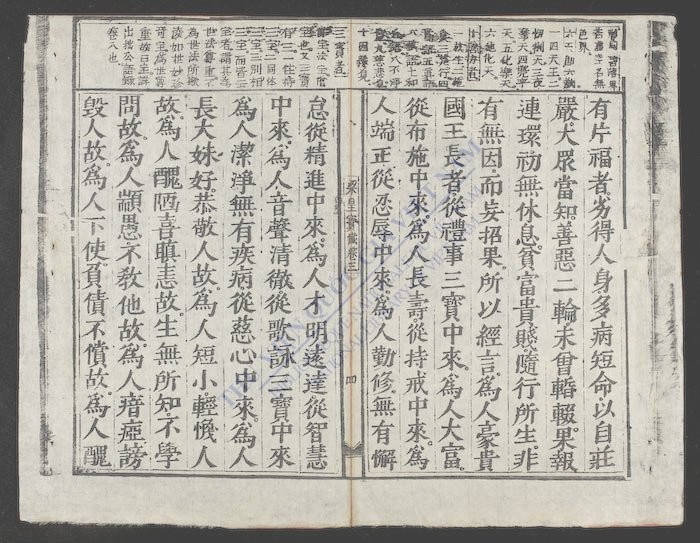 色界
六欲天
一四天王二
忉利天三夜
摩天四兜率
天五化樂天
六他化天
有片福者。劣得人身。多病短命。以自莊
嚴。大眾當知。善惡二輪。未曾暫輟。果報
連環。初無休息。貧富貴賤。隨行所生。非
有無因。而妄招果。所以經言。爲人豪貴
國王長者。從禮事三寶中來。爲人大富。
從布施中來。爲人長壽。從持戒中來。爲
人端正。從忍辱中來。爲人勤修。無有懈
梁皇寶懺卷三
四
三寶者
卷八也
怠。從精進中來。爲人才明遠達。從智慧
中來。爲人音聲清徹。從歌詠三寶中來
爲人潔淨。無有疾病。從慈心中來。爲人
長大姝好。恭敬人故。爲人短小。輕慢人
故。爲人醜陋。喜瞋恚故。生無所知。不學
問故。爲人顓愚。不教他故。爲人瘖瘂。謗
毀人故。爲人下使。負債不償故。爲人醜
THƯ VIỆN QUỐC GIA VIỆT NAM
NATIONAL LIBRARY OF VIETNAM